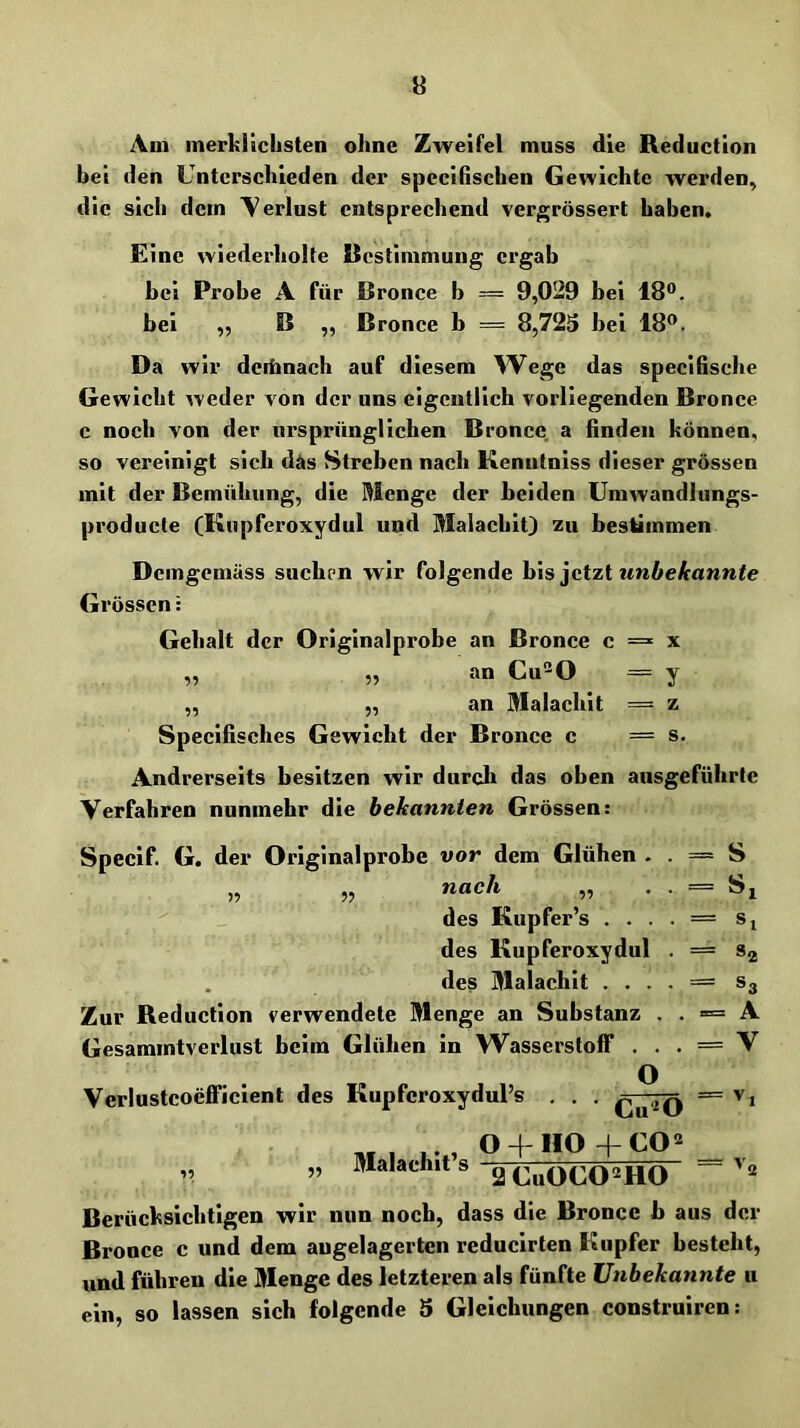 8
Am merklichsten ohne Zweifel muss die Reduction
bei den Unterschieden der specifischen Gewichte werden,
die sich dem Verlust entsprechend vergrössert haben.
Eine wiederholte Bestimmung ergab
bei Probe A für Bronce b = 9,029 bei 18⁰.
bei „ B „ Bronce b = 8,725 bei 18⁰.
Da wir demnach auf diesem Wege das specifische
Gewicht weder von der uns eigentlich vorliegenden Bronce
c noch von der ursprünglichen Bronce a finden können,
so vereinigt sich das Streben nach Kenntniss dieser grössen
mit der Bemühung, die Menge der beiden Umwandlungs-
producte (Kupferoxydul und Malachit) zu bestimmen
Demgemäss suchen wir folgende bis jetzt unbekannte
Grössen:
Gehalt der Originalprobe an Bronce c = x
„ „ an Cu²O = y
„ „ an Malachit = z
Specifisches Gewicht der Bronce c = s.
Andrerseits besitzen wir durch das oben ausgeführte
Verfahren nunmehr die bekannten Grössen:
Specif. G. der Originalprobe vor dem Glühen . . = S
„ „ nach „ . . = S₁
des Kupfer's . . . . = s₁
des Kupferoxydul . = s₂
des Malachit . . . . = s₃
Zur Reduction verwendete Menge an Substanz . . = A
Gesammtverlust beim Glühen in Wasserstoff . . . = V
Verlustcoëfficient des Kupferoxydul's . . . O / Cu²O = v₁
„ „ Malachit's O + HO + CO² / 2 CuOCO²HO = v₂
Berücksichtigen wir nun noch, dass die Bronce b aus der
Bronce c und dem angelagerten reducirten Kupfer besteht,
und führen die Menge des letzteren als fünfte Unbekannte u
ein, so lassen sich folgende 5 Gleichungen construiren: